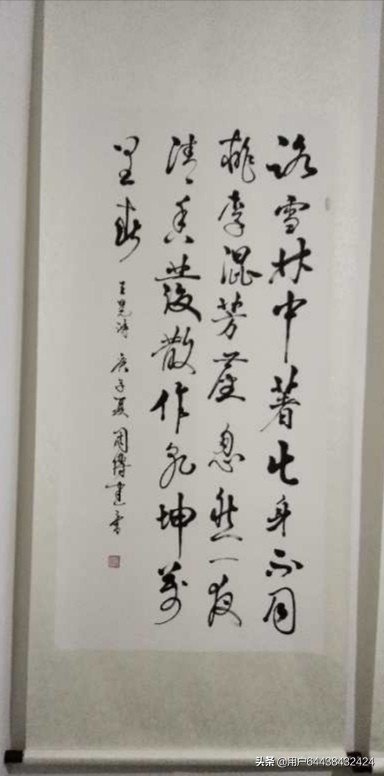 雪林中著此身不同
桃李混芳塵忽然一夜
清香發散作乾坤萬
里春
王冕诗 庚子夏 周建書
头条 @用户64438432424